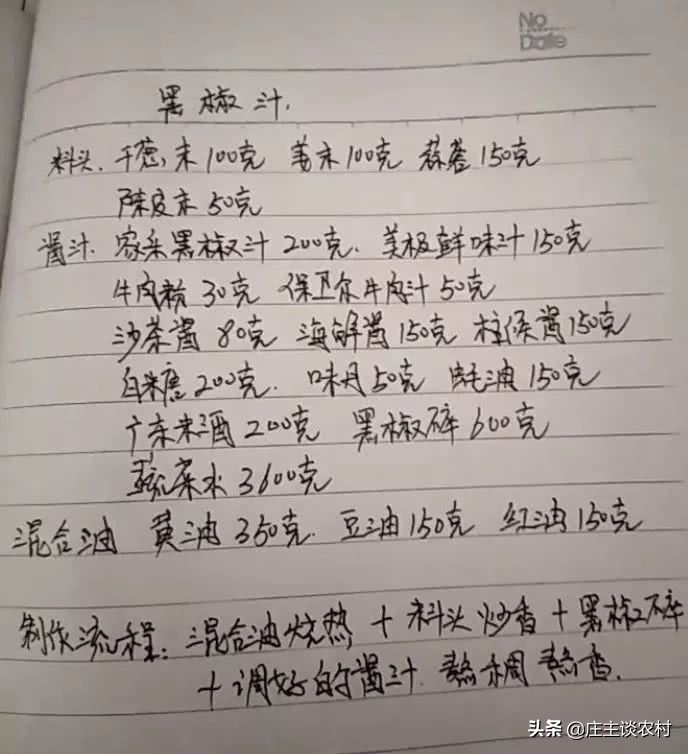 No
Date
黑椒汁.
料头. 干葱末100克 姜末100克 蒜蓉150克
陈皮末50克
酱汁. 家乐黑椒汁200克. 美极鲜味汁150克
牛肉粉30克 保卫尔牛肉汁50克
沙茶酱80克 海鲜酱150克 柱候酱150克
白糖200克. 味丹50克 蚝油150克
广东米酒200克 黑椒碎600克
蔬菜水3600克
混合油 黄油350克. 豆油150克 红油150克
制作流程: 混合油烧热 + 料头炒香 + 黑椒碎
+ 调好的酱汁. 熬稠熬香.
头条 @庄主谈农村